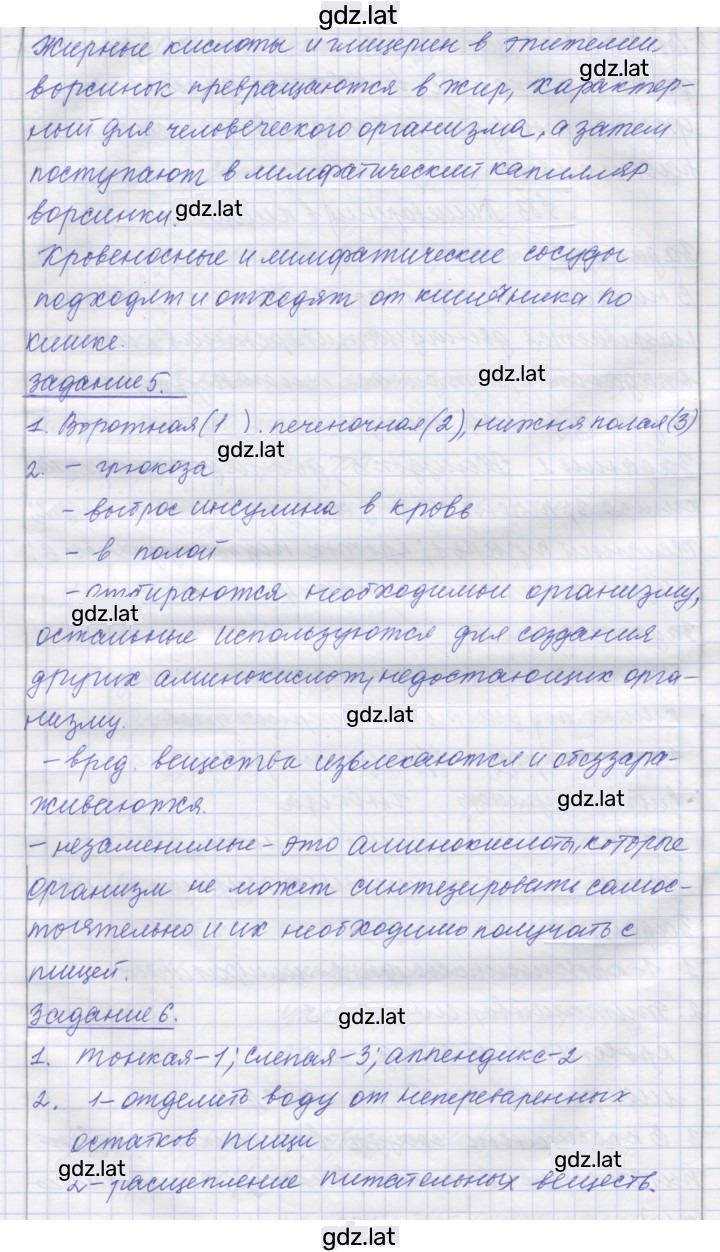 gdz.lat
Жирные кислоты и глицерин в эпителии
gdz.lat
ворсинок превращаются в жир, характер-
ный для человеческого организма, а затем
поступают в лимфатический капилляр
ворсинки.
gdz.lat
Кровеносные и лимфатические сосуды
подходят и отходят от кишечника по
кишке.
gdz.lat
Задание 5.
1. Воротная (1 ). печеночная (2), нижня полая (3)
gdz.lat
2. - глюкоза
- выброс инсулина в кровь
- в полой
- отбираются необходимые организму,
gdz.lat
остальные используются для создания
других аминокислот, недостающих орга-
низму.
gdz.lat
- вред. вещества извлекаются и обеззара-
живаются.
gdz.lat
- незаменимые - это аминокислоты, которые
организм не может синтезировать самос-
тоятельно и их необходимо получать с
пищей.
Задание 6.
gdz.lat
1. тонкая-1; слепая-3; аппендикс-2
2. 1- отделить воду от непереваренных
остатков пищи
gdz.lat
gdz.lat
2- расщепление питательных веществ.
gdz.lat